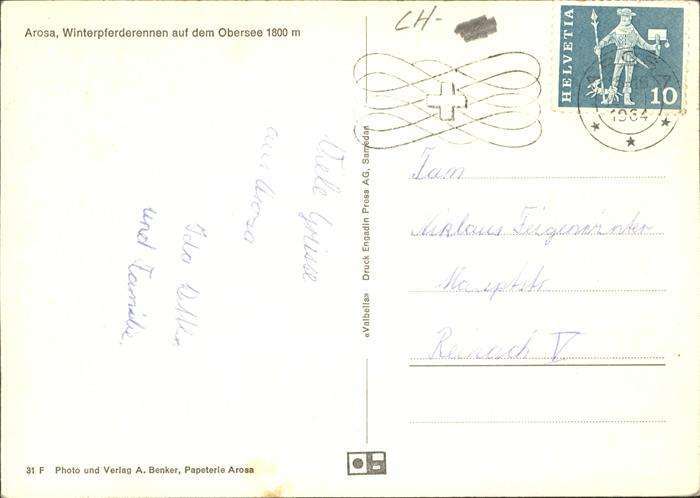 Arosa, Winterpferderennen auf dem Obersee 1800 m
CH-
HELVETIA
10
1964
Viele Grüsse
aus Arosa
Ida
und Familie
«Valbella» Druck Engadin Press AG, Samedan
Fam
Niklaus Feigenwinter
Hauptstr
Reinach
31 F Photo und Verlag A. Benker, Papeterie Arosa